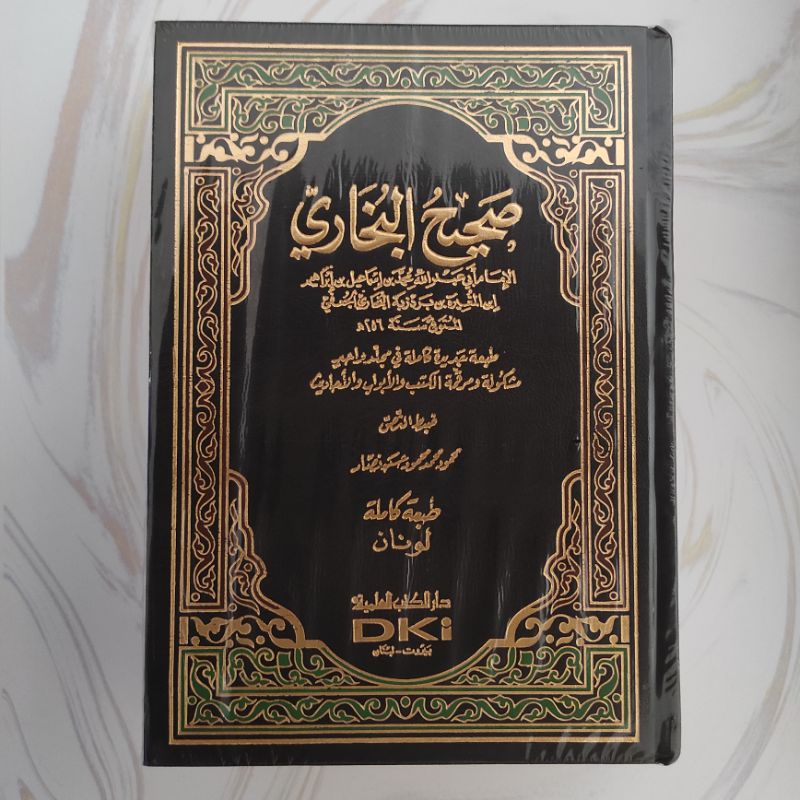 صَحِيحُ البُخَارِيّ
الإمام أبي عبد الله محمد بن إسماعيل بن إبراهيم
ابن المغيرة بن بردزبة البخاري الجعفي
المتوفى سنة ٢٥٦هـ
طبعة جديدة كاملة في مجلد واحد
مشكولة ومرقمة الكتب والأبواب والأحاديث
ضبط النص
محمود محمد محمود حسن نصار
طبعة كاملة
لونان
دار الكتب العلمية
DKi
بيروت - لبنان